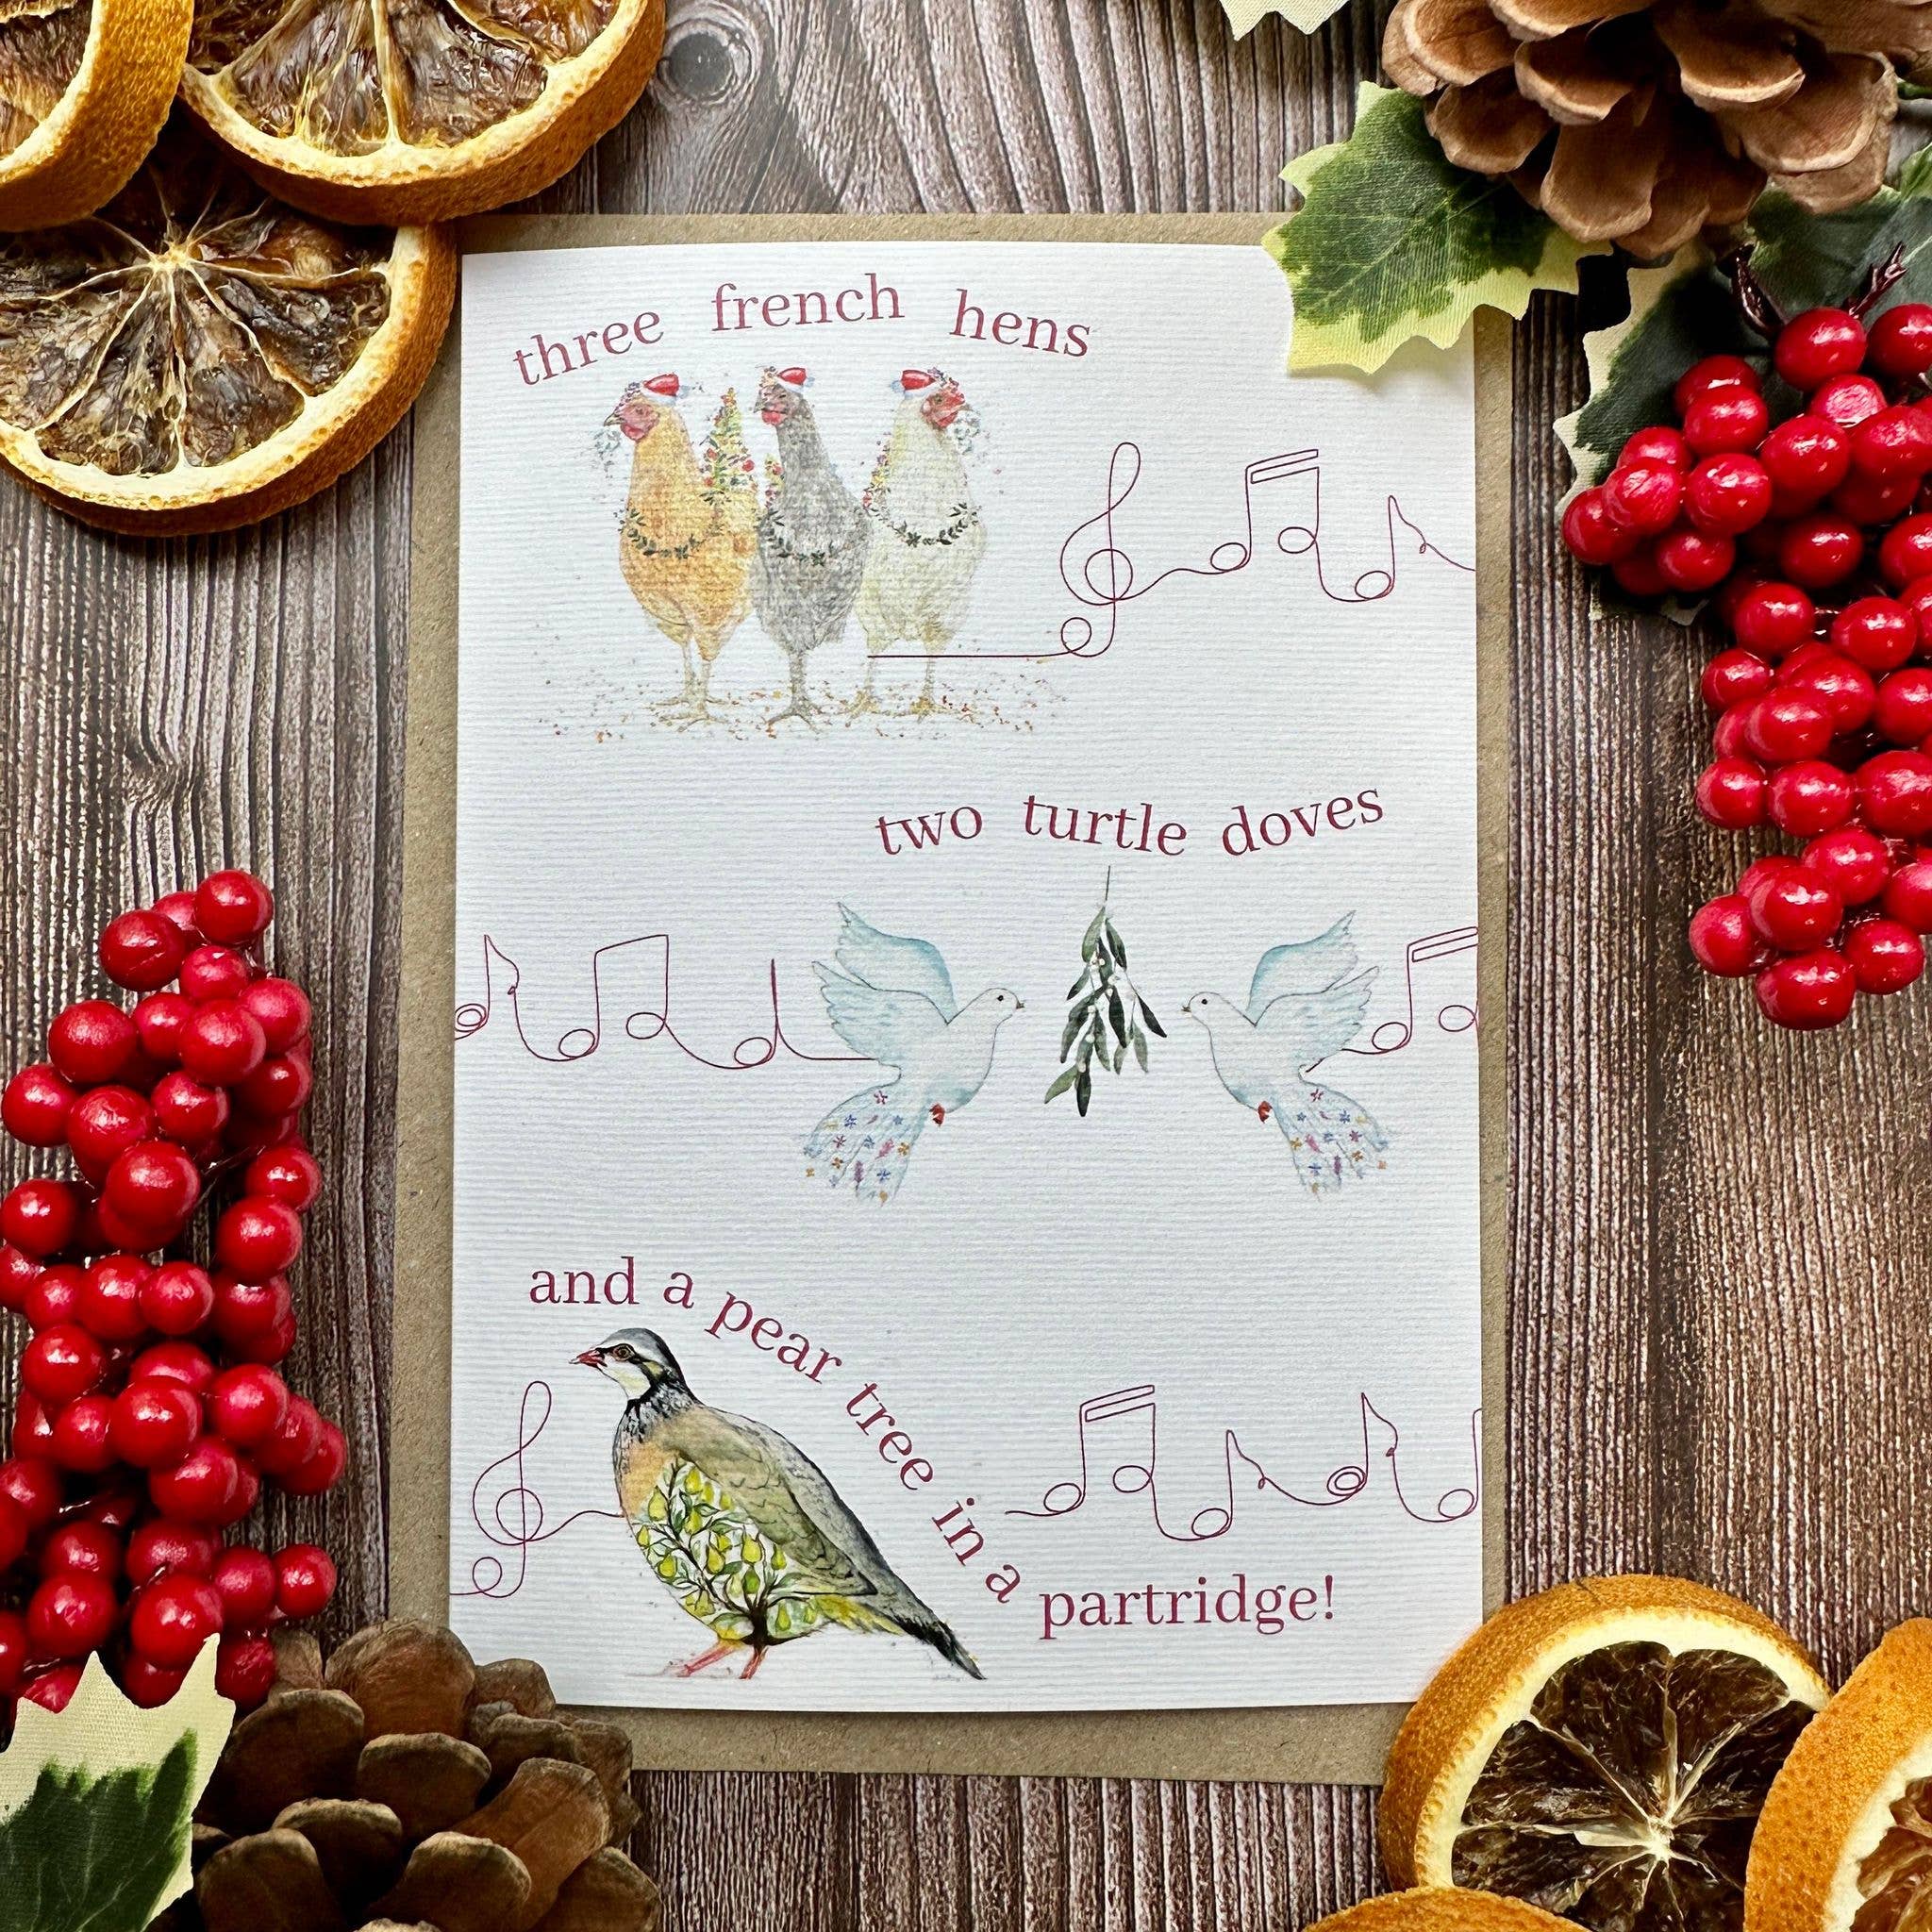 three french hens
two turtle doves
and a pear tree in a partridge!